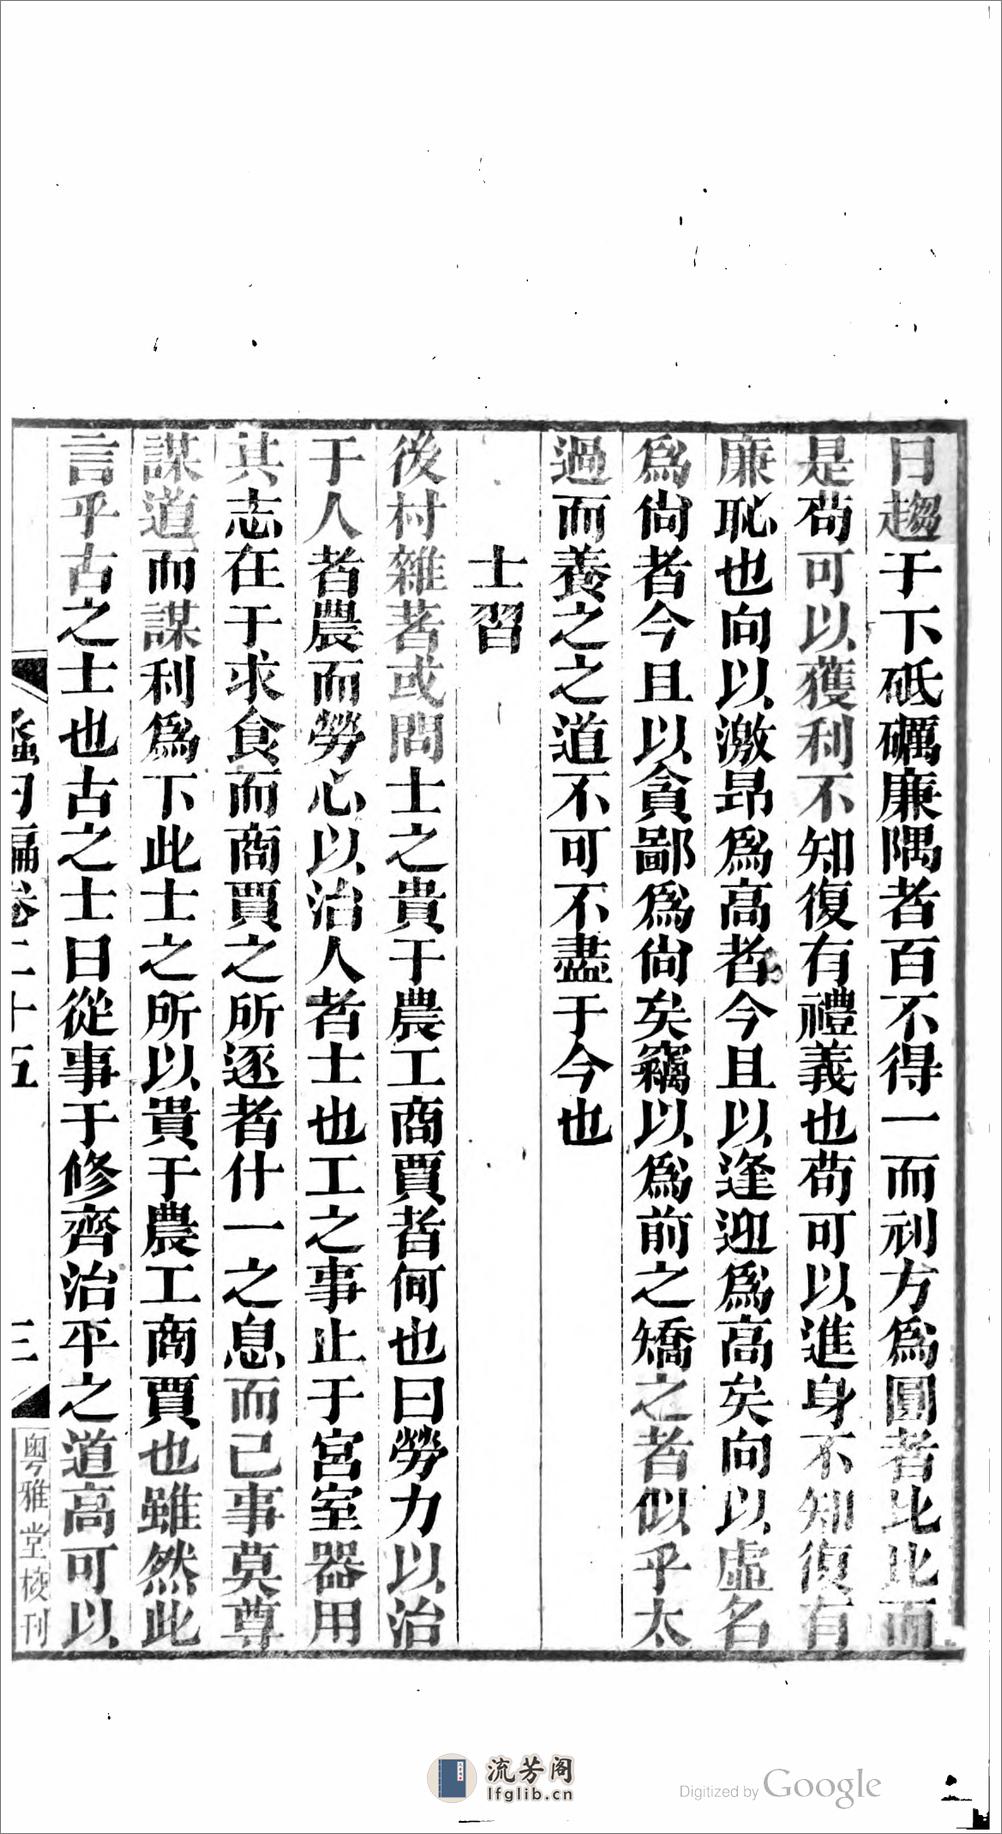 日趨于下砥礪廉隅者百不得一而刓方爲圓者比比而
是苟可以獲利不知復有禮義也苟可以進身不知復有
廉恥也向以激昂爲高者今且以逢迎爲高矣向以虛名
爲尙者今且以貪鄙爲尙矣竊以爲前之矯之者似乎太
過而養之之道不可不盡于今也
士習
後村雜著或問士之貴于農工商賈者何也曰勞力以治
于人者農而勞心以治人者士也工之事止于宮室器用
其志在于求食而商賈之所逐者什一之息而已事莫尊
謀道而謀利爲下此士之所以貴于農工商賈也雖然此
言乎古之士也古之士日從事于修齊治平之道高可以
蠡勺編卷二十五
三
粤雅堂校刊
流芳阁
lfglib.cn
Digitized by Google